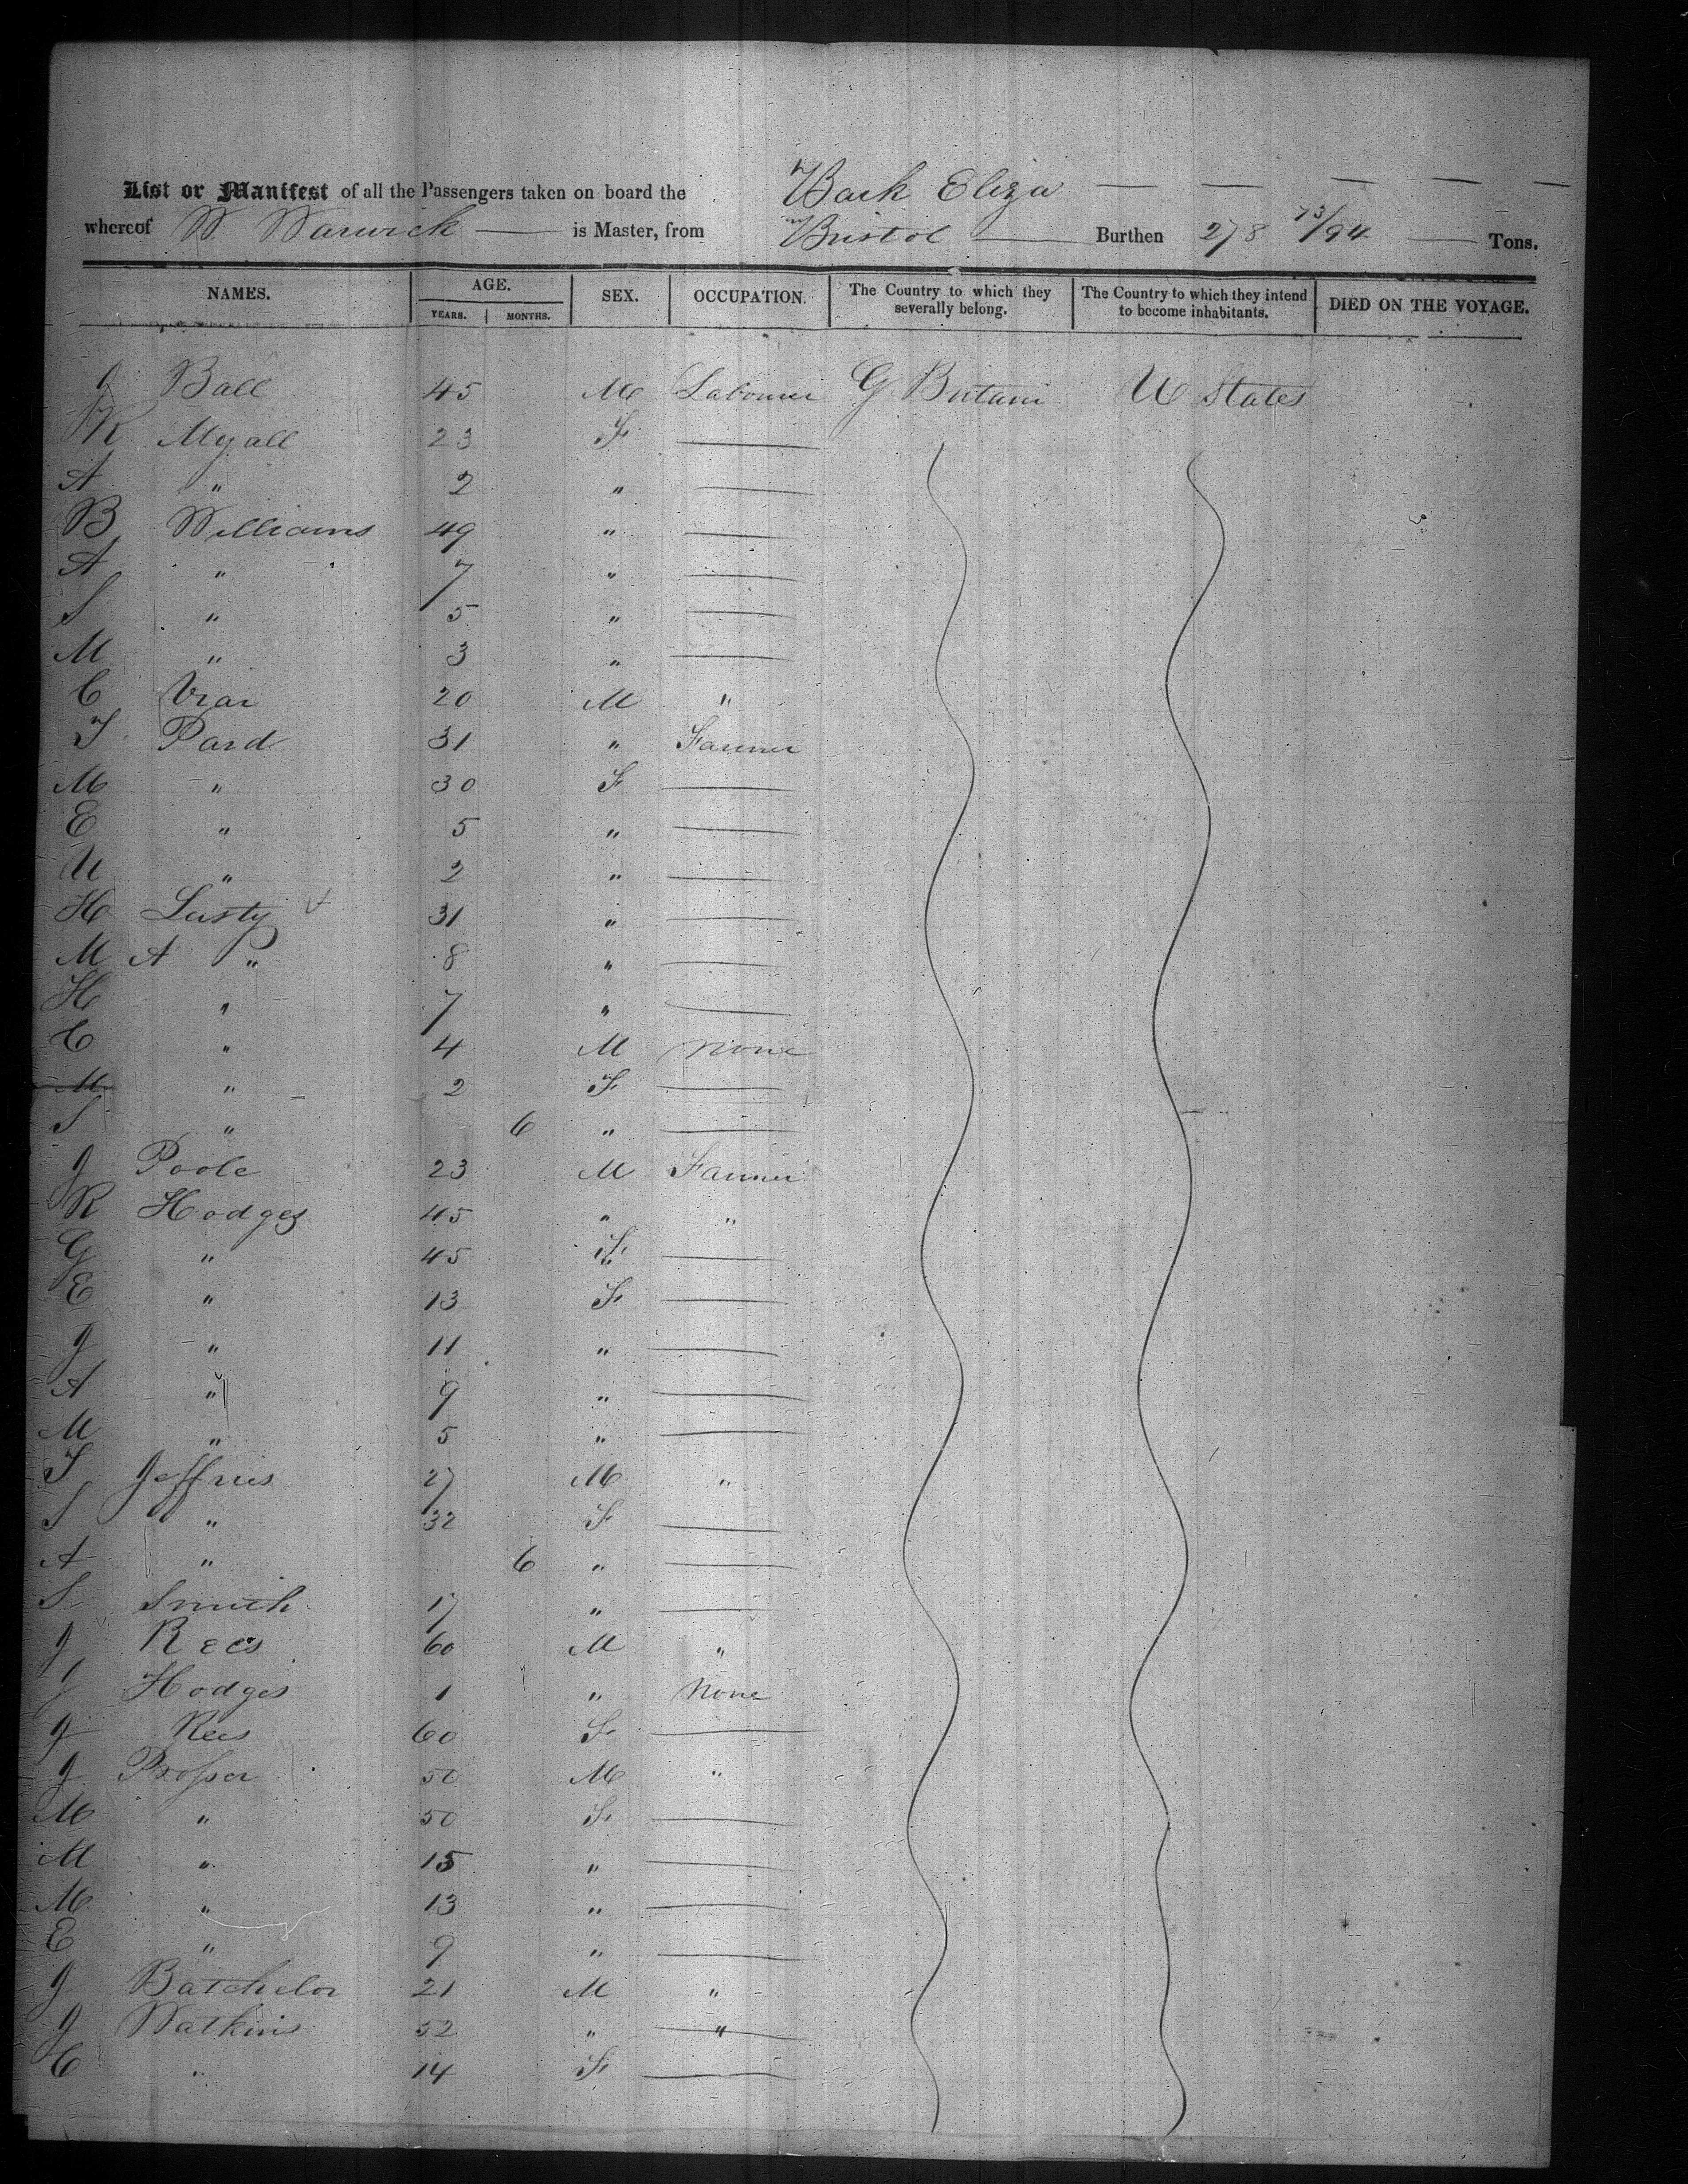 List or Manifest of all the Passengers taken on board the Bark Eliza
whereof W Warwick is Master, from Bristol Burthen 278 73/94 Tons.
NAMES. AGE. SEX. OCCUPATION. The Country to which they severally belong. The Country to which they intend to become inhabitants. DIED ON THE VOYAGE.
YEARS. MONTHS.
J Ball 45 M Labourer G Britain U States
R Myall 23 F
A " 2 "
B Williams 49 "
A " 7 "
S " 5 "
M " 3 "
C Viar 20 M "
T Pard 31 " Farmer
M " 30 F
E " 5 "
U " 2 "
H Lusty 31 "
M A " 8 "
H " 7 "
C " 4 M None
M " 2 F
S " 6 "
J Poole 23 M Farmer
R Hodges 45 " "
G " 45 F
E " 13 F
J " 11 "
A " 9 "
M " 5 "
T Jeffries 27 M "
S " 32 F
A " 6 "
S Smith 17 "
J Rees 60 M "
J Hodges 1 " None
J Rees 60 F
J Prosser 50 M "
M " 50 F
M " 15 "
M " 13 "
E " 9 "
J Batchelor 21 M "
J Watkins 52 " "
C " 14 F